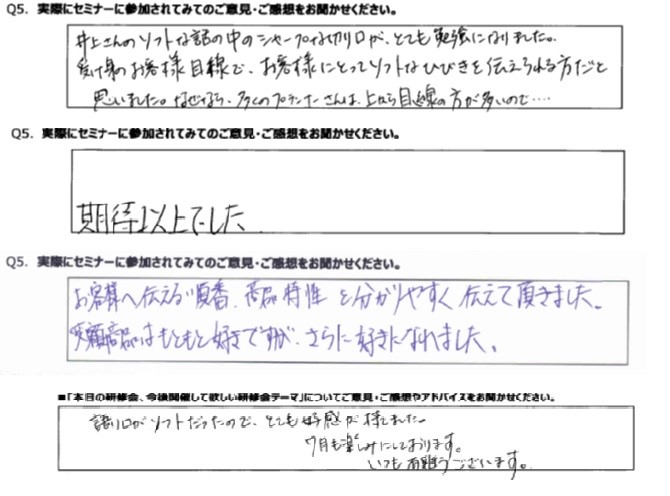 Q5. 実際にセミナーに参加されてみてのご意見・ご感想をお聞かせください。
井上さんのソフトな話の中のシャープな切り口が、とても勉強になりました。
受け身のお客様目線で、お客様にとってソフトなひびきを伝えられる方だと
思いました。なぜなら、多くのプランナーさんは、上から目線の方が多いので‥‥
Q5. 実際にセミナーに参加されてみてのご意見・ご感想をお聞かせください。
期待以上でした
Q5. 実際にセミナーに参加されてみてのご意見・ご感想をお聞かせください。
お客様へ伝える順番、商品特性を分かりやすく伝えて頂きました。
商品はもともと好きですが、さらに好きになれました。
■「本日の研修会、今後開催して欲しい研修会テーマ」についてご意見・ご感想やアドバイスをお聞かせください。
語り口がソフトだったので、とても好感が持てました。
7月も楽しみにしております。
いつも有難うございます。